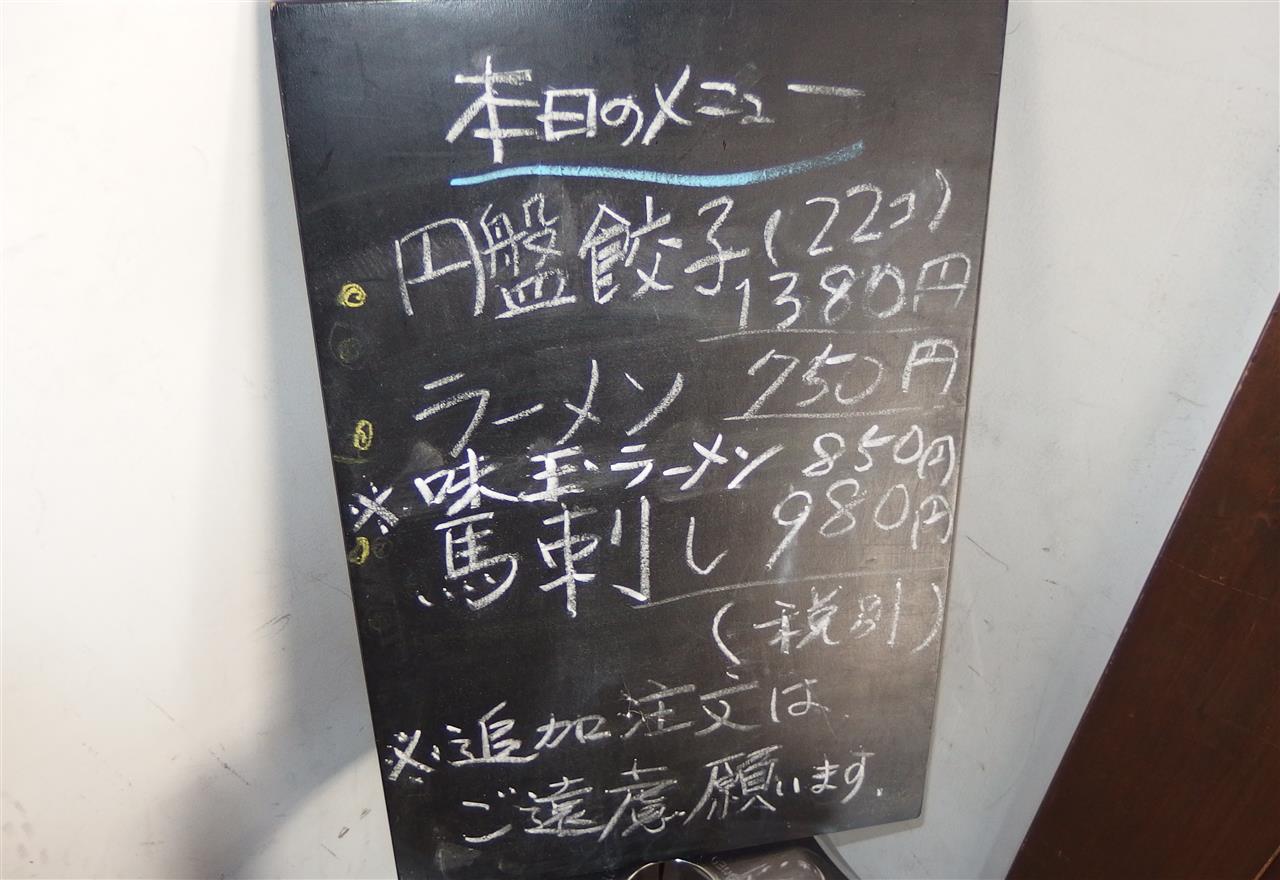 本日のメニュー
円盤餃子(22コ)
1380円
ラーメン 750円
※味玉ラーメン 850円
馬刺し 980円
(税別)
※追加注文は
ご遠慮願います.